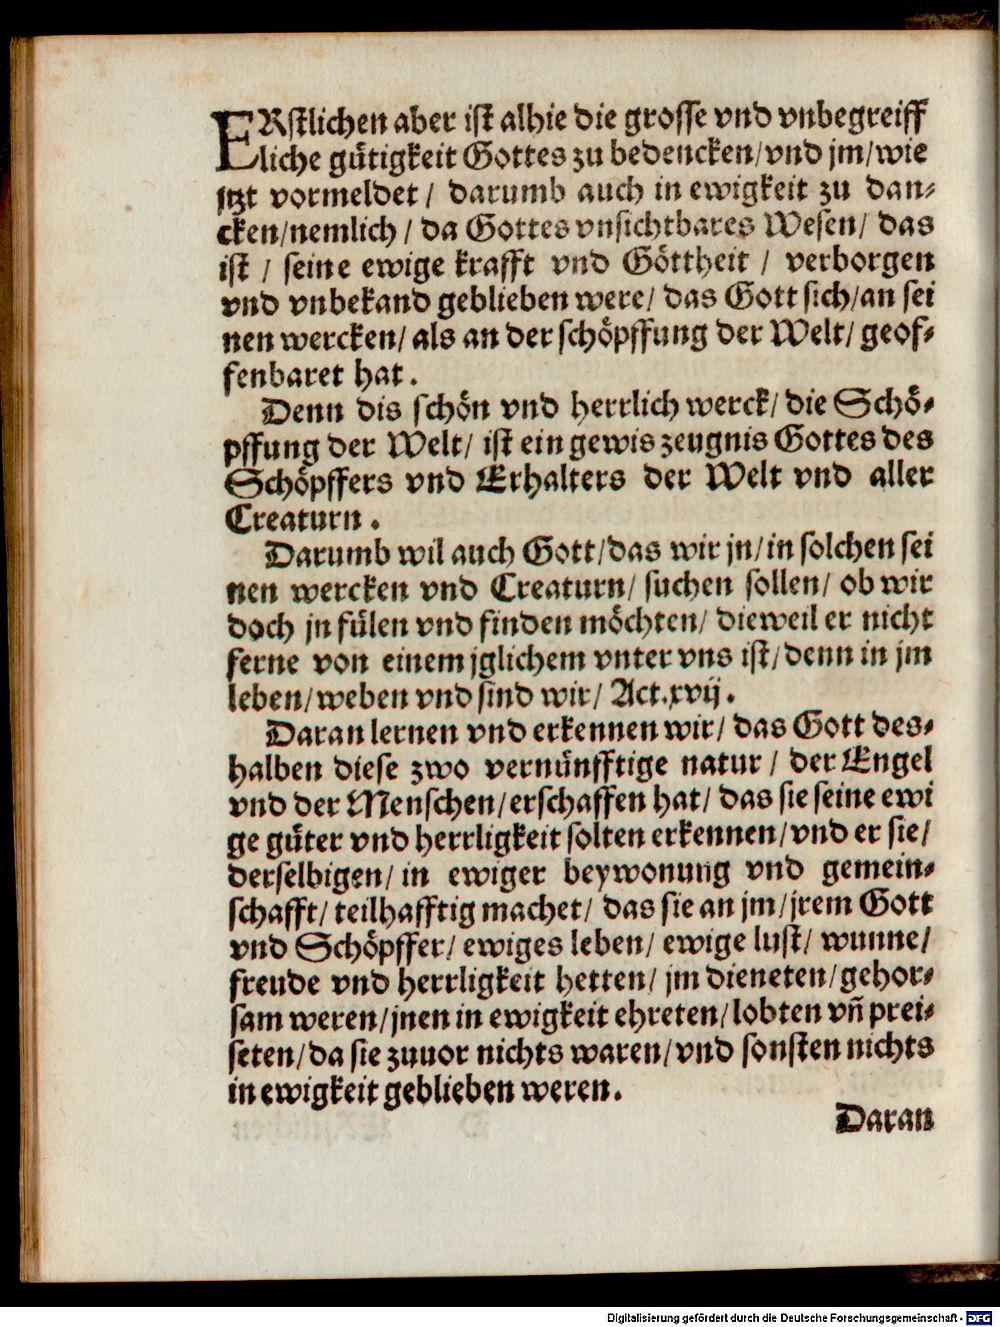 ERstlichen aber ist alhie die grosse vnd vnbegreiff
liche gütigkeit Gottes zu bedencken/vnd jm/wie
jtzt vormeldet/ darumb auch in ewigkeit zu dan-
cken/nemlich/ da Gottes vnsichtbares Wesen/ das
ist/ seine ewige krafft vnd Göttheit/ verborgen
vnd vnbekand geblieben were/ das Gott sich/an sei
nen wercken/ als an der schöpffung der Welt/ geof-
fenbaret hat.
Denn dis schön vnd herrlich werck/ die Schö-
pffung der Welt/ ist ein gewis zeugnis Gottes des
Schöpffers vnd Erhalters der Welt vnd aller
Creaturn.
Darumb wil auch Gott/das wir jn/in solchen sei
nen wercken vnd Creaturn/ suchen sollen/ ob wir
doch jn fülen vnd finden möchten/ dieweil er nicht
ferne von einem jglichem vnter vns ist/denn in jm
leben/weben vnd sind wir/ Act.xvij.
Daran lernen vnd erkennen wir/ das Gott des-
halben diese zwo vernünfftige natur/ der Engel
vnd der Menschen/erschaffen hat/ das sie seine ewi
ge güter vnd herrligkeit solten erkennen/vnd er sie/
derselbigen/ in ewiger beywonung vnd gemein-
schafft/ teilhafftig machet/ das sie an jm/jrem Gott
vnd Schöpffer/ ewiges leben/ ewige lust/ wunne/
freude vnd herrligkeit hetten/ jm dieneten/gehor-
sam weren/jnen in ewigkeit ehreten/lobten vñ prei-
seten/da sie zuuor nichts waren/vnd sonsten nichts
in ewigkeit geblieben weren.
Daran
Digitalisierung gefördert durch die Deutsche Forschungsgemeinschaft - DFG